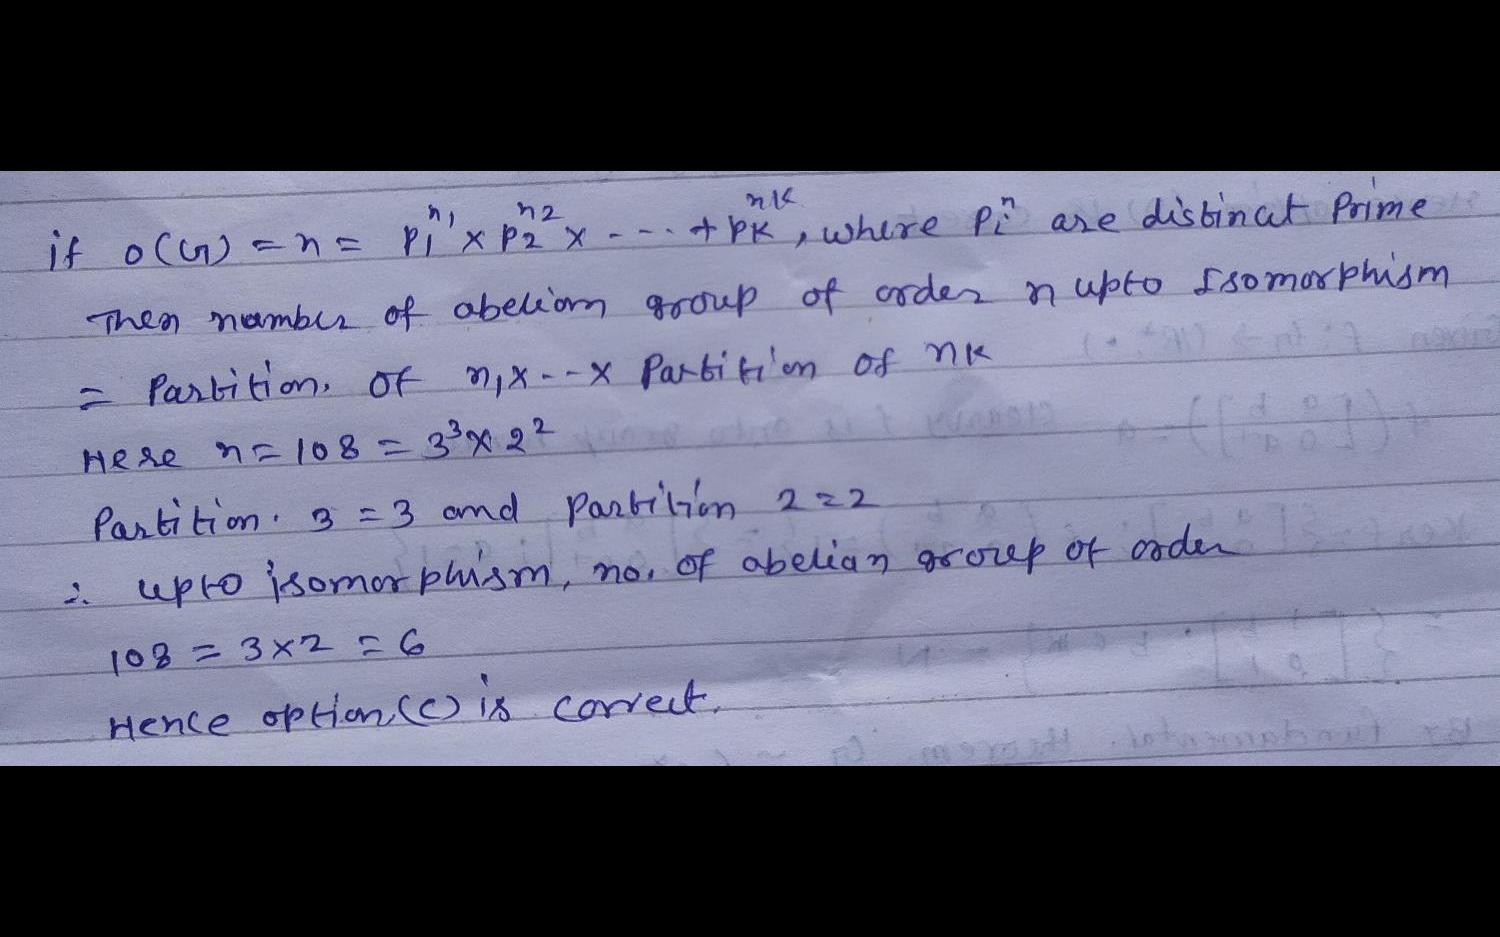 if o(G) = n = p₁^n₁ × p₂^n2 × - - - + pK^nK, where Pi^n are distinct Prime
Then number of abelian group of order n upto Isomorphism
= Partition. of n₁ × - - × Partition of nK
Here n = 108 = 3³ × 2²
Partition. 3 = 3 and Partition 2 = 2
∴ upto isomorphism, no. of abelian group of order
108 = 3×2 = 6
Hence option (c) is correct.